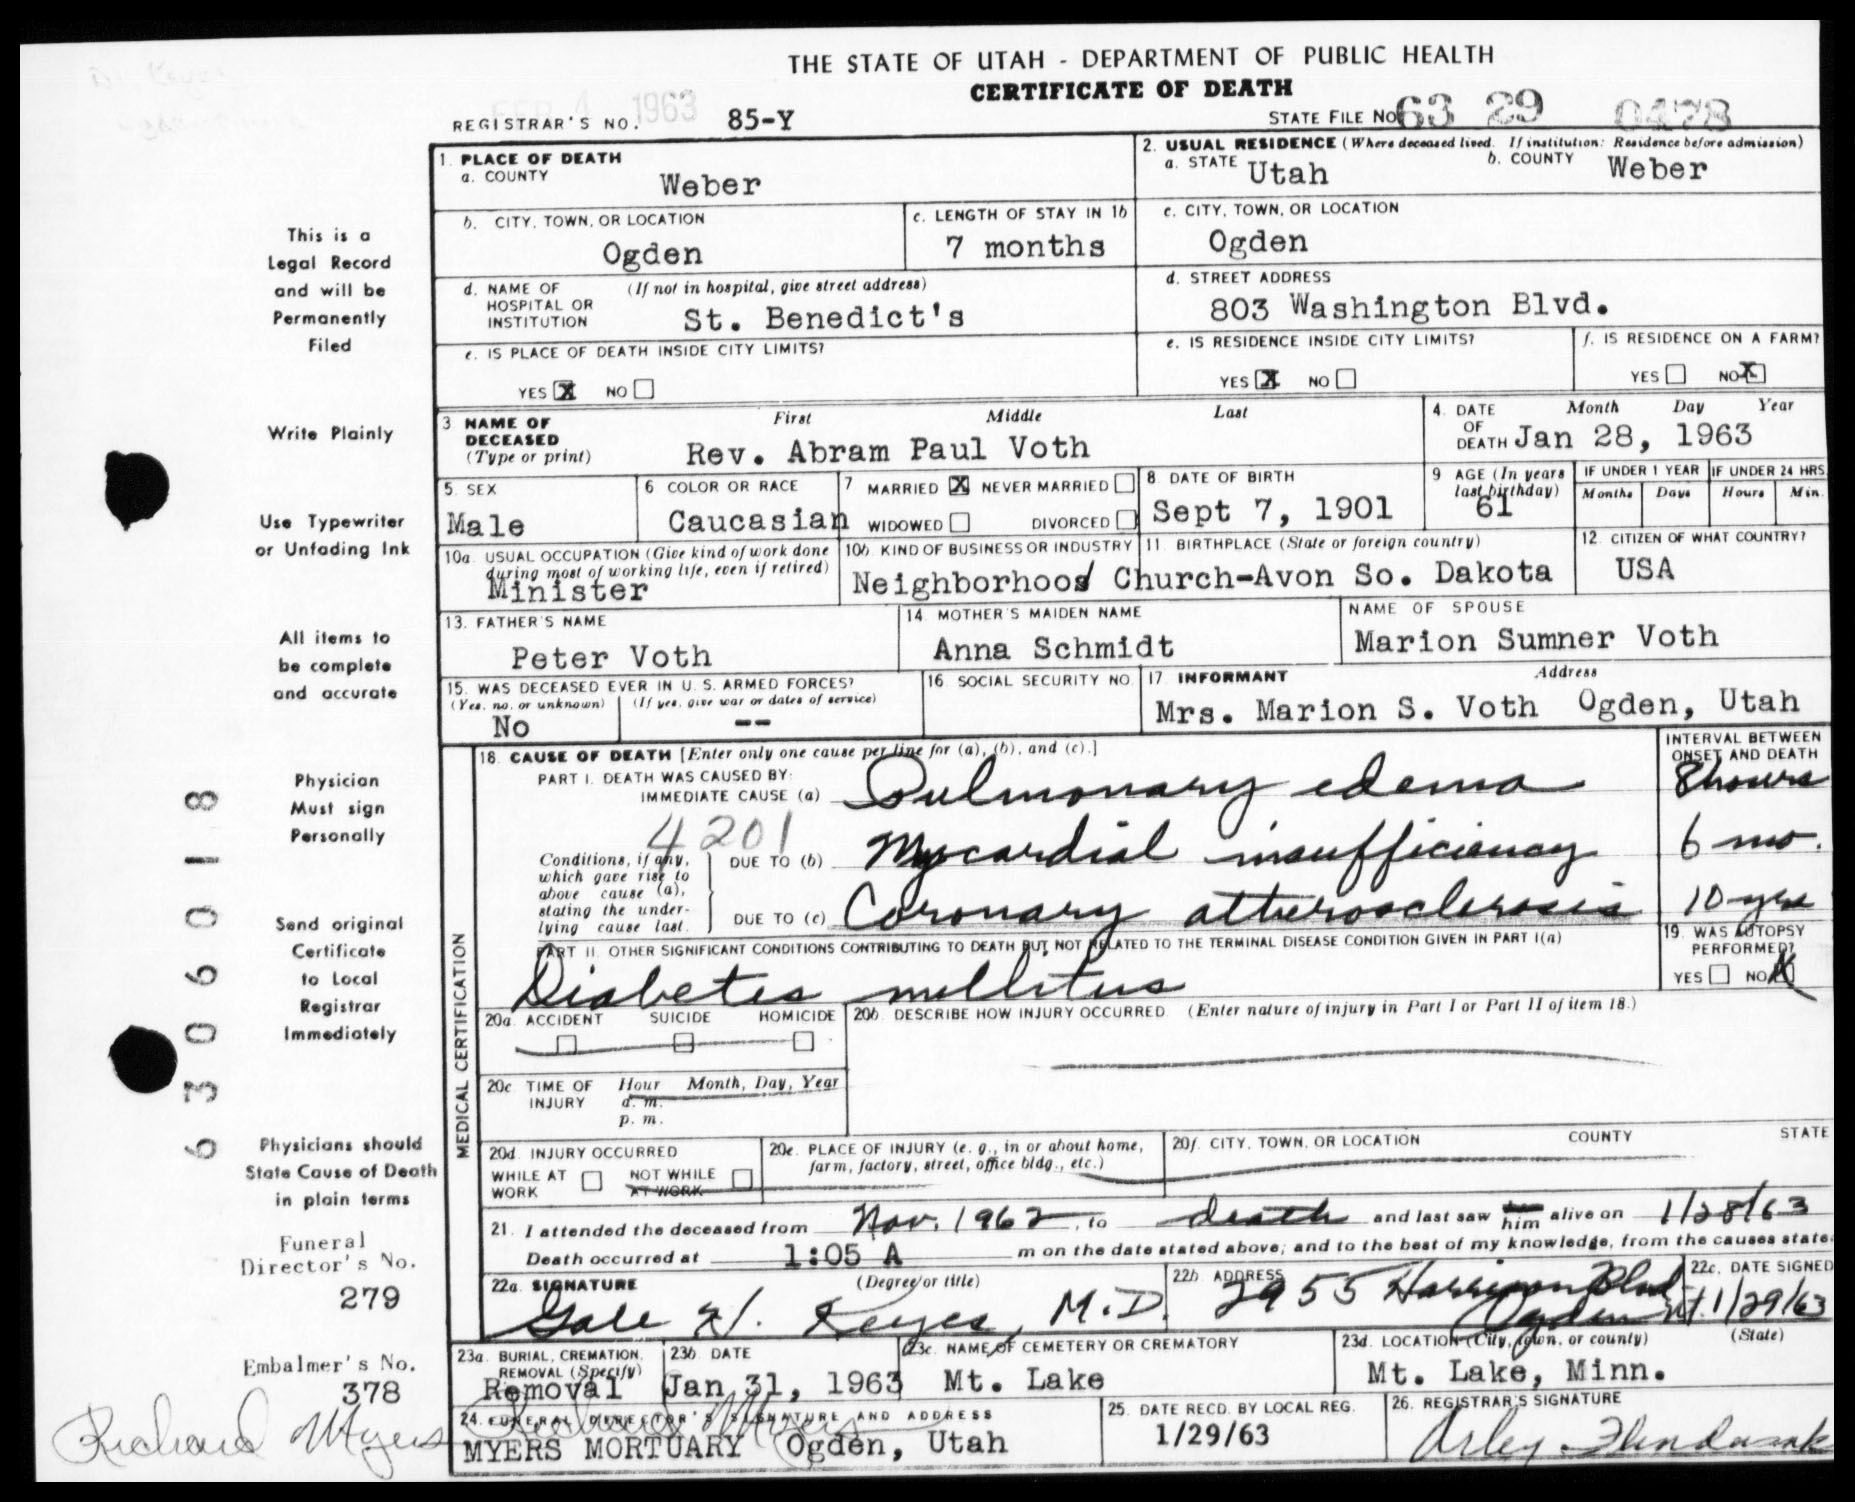 THE STATE OF UTAH - DEPARTMENT OF PUBLIC HEALTH
CERTIFICATE OF DEATH
REGISTRAR'S NO. 85-Y
1963
STATE FILE NO 63 29 0478
1. PLACE OF DEATH
a. COUNTY Weber
2. USUAL RESIDENCE (Where deceased lived. If institution: Residence before admission)
a. STATE Utah b. COUNTY Weber
b. CITY, TOWN, OR LOCATION Ogden
c. LENGTH OF STAY IN 1b 7 months
c. CITY, TOWN, OR LOCATION Ogden
d. NAME OF HOSPITAL OR INSTITUTION (If not in hospital, give street address) St. Benedict's
d. STREET ADDRESS 803 Washington Blvd.
e. IS PLACE OF DEATH INSIDE CITY LIMITS?
YES X NO
e. IS RESIDENCE INSIDE CITY LIMITS?
YES X NO
f. IS RESIDENCE ON A FARM?
YES NO X
3 NAME OF DECEASED (Type or print) First Middle Last
Rev. Abram Paul Voth
4. DATE OF DEATH Month Day Year
Jan 28, 1963
5. SEX Male
6 COLOR OR RACE Caucasian
7 MARRIED X NEVER MARRIED
WIDOWED DIVORCED
8. DATE OF BIRTH Sept 7, 1901
9 AGE (In years last birthday) 61
IF UNDER 1 YEAR Months Days
IF UNDER 24 HRS. Hours Min.
10a. USUAL OCCUPATION (Give kind of work done during most of working life, even if retired)
Minister
10b. KIND OF BUSINESS OR INDUSTRY
Neighborhood Church-
11. BIRTHPLACE (State or foreign country)
Avon So. Dakota
12. CITIZEN OF WHAT COUNTRY?
USA
13. FATHER'S NAME
Peter Voth
14. MOTHER'S MAIDEN NAME
Anna Schmidt
NAME OF SPOUSE
Marion Sumner Voth
15. WAS DECEASED EVER IN U.S. ARMED FORCES?
(Yes, no, or unknown) (If yes, give war or dates of service)
No --
16. SOCIAL SECURITY NO.
17. INFORMANT Address
Mrs. Marion S. Voth Ogden, Utah
MEDICAL CERTIFICATION
18. CAUSE OF DEATH [Enter only one cause per line for (a), (b), and (c).]
INTERVAL BETWEEN ONSET AND DEATH
PART I. DEATH WAS CAUSED BY:
IMMEDIATE CAUSE (a) Pulmonary edema 8 hours
4201
Conditions, if any, which gave rise to above cause (a), stating the underlying cause last.
DUE TO (b) Myocardial insufficiency 6 mo.
DUE TO (c) Coronary atherosclerosis 10 yrs
PART II. OTHER SIGNIFICANT CONDITIONS CONTRIBUTING TO DEATH BUT NOT RELATED TO THE TERMINAL DISEASE CONDITION GIVEN IN PART I(a)
Diabetes mellitus
19. WAS AUTOPSY PERFORMED?
YES NO X
20a. ACCIDENT SUICIDE HOMICIDE
20b. DESCRIBE HOW INJURY OCCURRED. (Enter nature of injury in Part I or Part II of item 18.)
20c TIME OF INJURY Hour Month, Day, Year
a. m.
p. m.
20d. INJURY OCCURRED
WHILE AT WORK NOT WHILE AT WORK
20e. PLACE OF INJURY (e. g., in or about home, farm, factory, street, office bldg., etc.)
20f. CITY, TOWN, OR LOCATION COUNTY STATE
21. I attended the deceased from Nov. 1962, to death and last saw him alive on 1/28/63
Death occurred at 1:05 A m on the date stated above; and to the best of my knowledge, from the causes state
22a. SIGNATURE (Degree or title)
Gale H. Keyes, M.D.
22b. ADDRESS
2955 Harrison Blvd
Ogden Ut.
22c. DATE SIGNED
1/29/63
23a. BURIAL, CREMATION, REMOVAL (Specify)
Removal
23b. DATE
Jan 31, 1963
23c. NAME OF CEMETERY OR CREMATORY
Mt. Lake
23d. LOCATION (City, town, or county) (State)
Mt. Lake, Minn.
24. FUNERAL DIRECTOR'S SIGNATURE AND ADDRESS
Richard Myers
MYERS MORTUARY Ogden, Utah
25. DATE RECD. BY LOCAL REG.
1/29/63
26. REGISTRAR'S SIGNATURE
This is a
Legal Record
and will be
Permanently
Filed
Write Plainly
Use Typewriter
or Unfading Ink
All items to
be complete
and accurate
Physician
Must sign
Personally
Send original
Certificate
to Local
Registrar
Immediately
Physicians should
State Cause of Death
in plain terms
Funeral
Director's No.
279
Embalmer's No.
378
Richard Myers
6306018